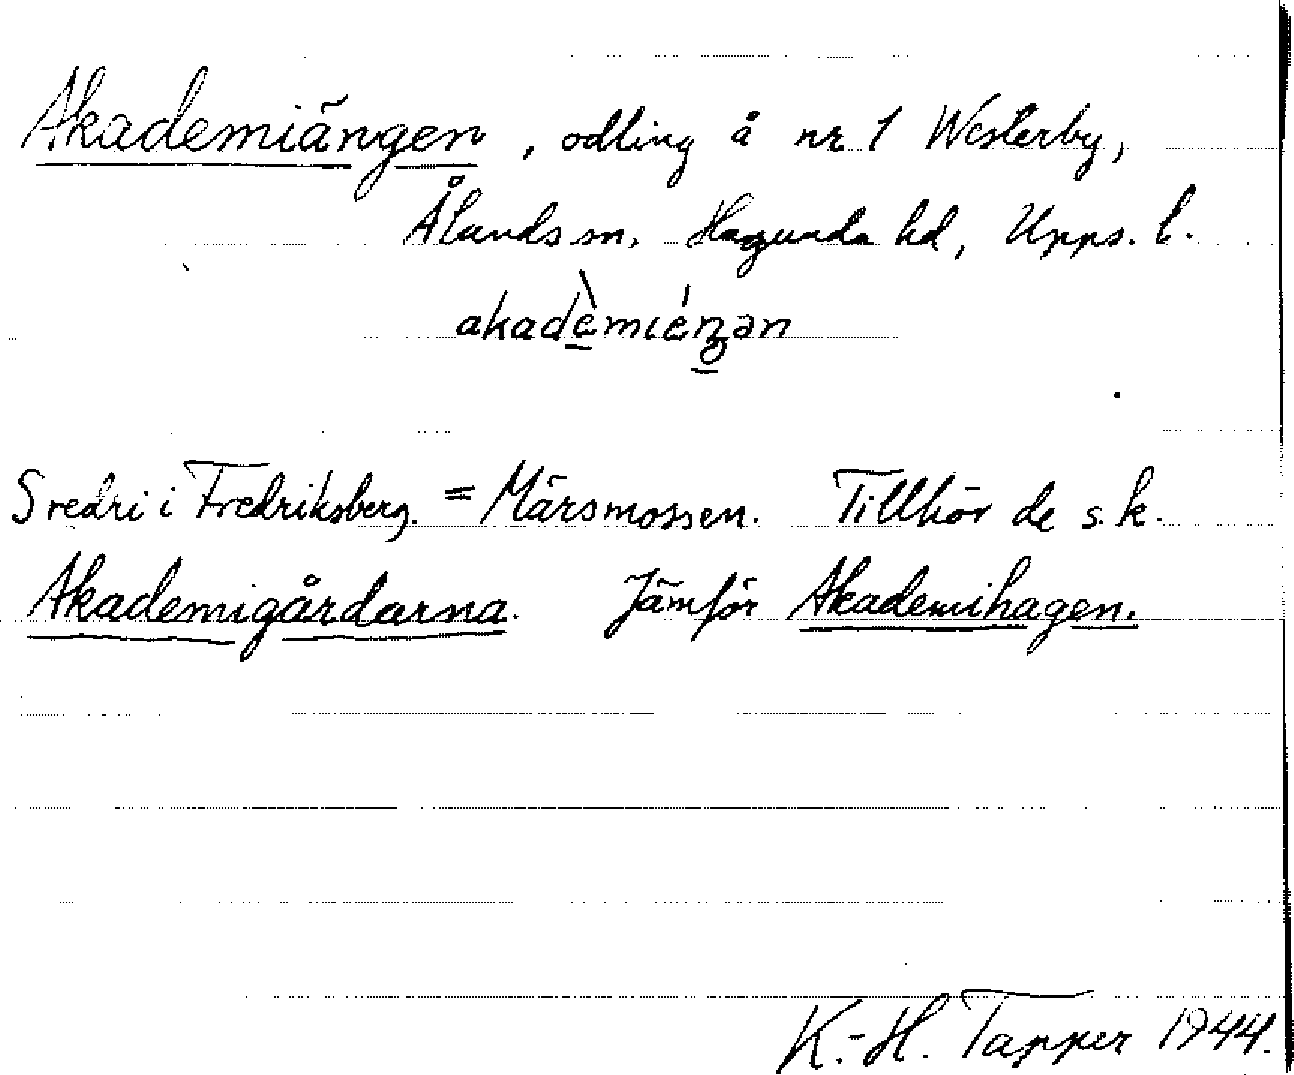 Akademiängen, odling å nr 1 Westerby,
Ålands sn, Hagunda hd, Upps. l.
akadèmiéŋən
S redri i Fredriksberg. = Märsmossen. Tillhör de s.k.
Akademigårdarna. Jämför Akademihagen.
K.-H. Tapper 1944.